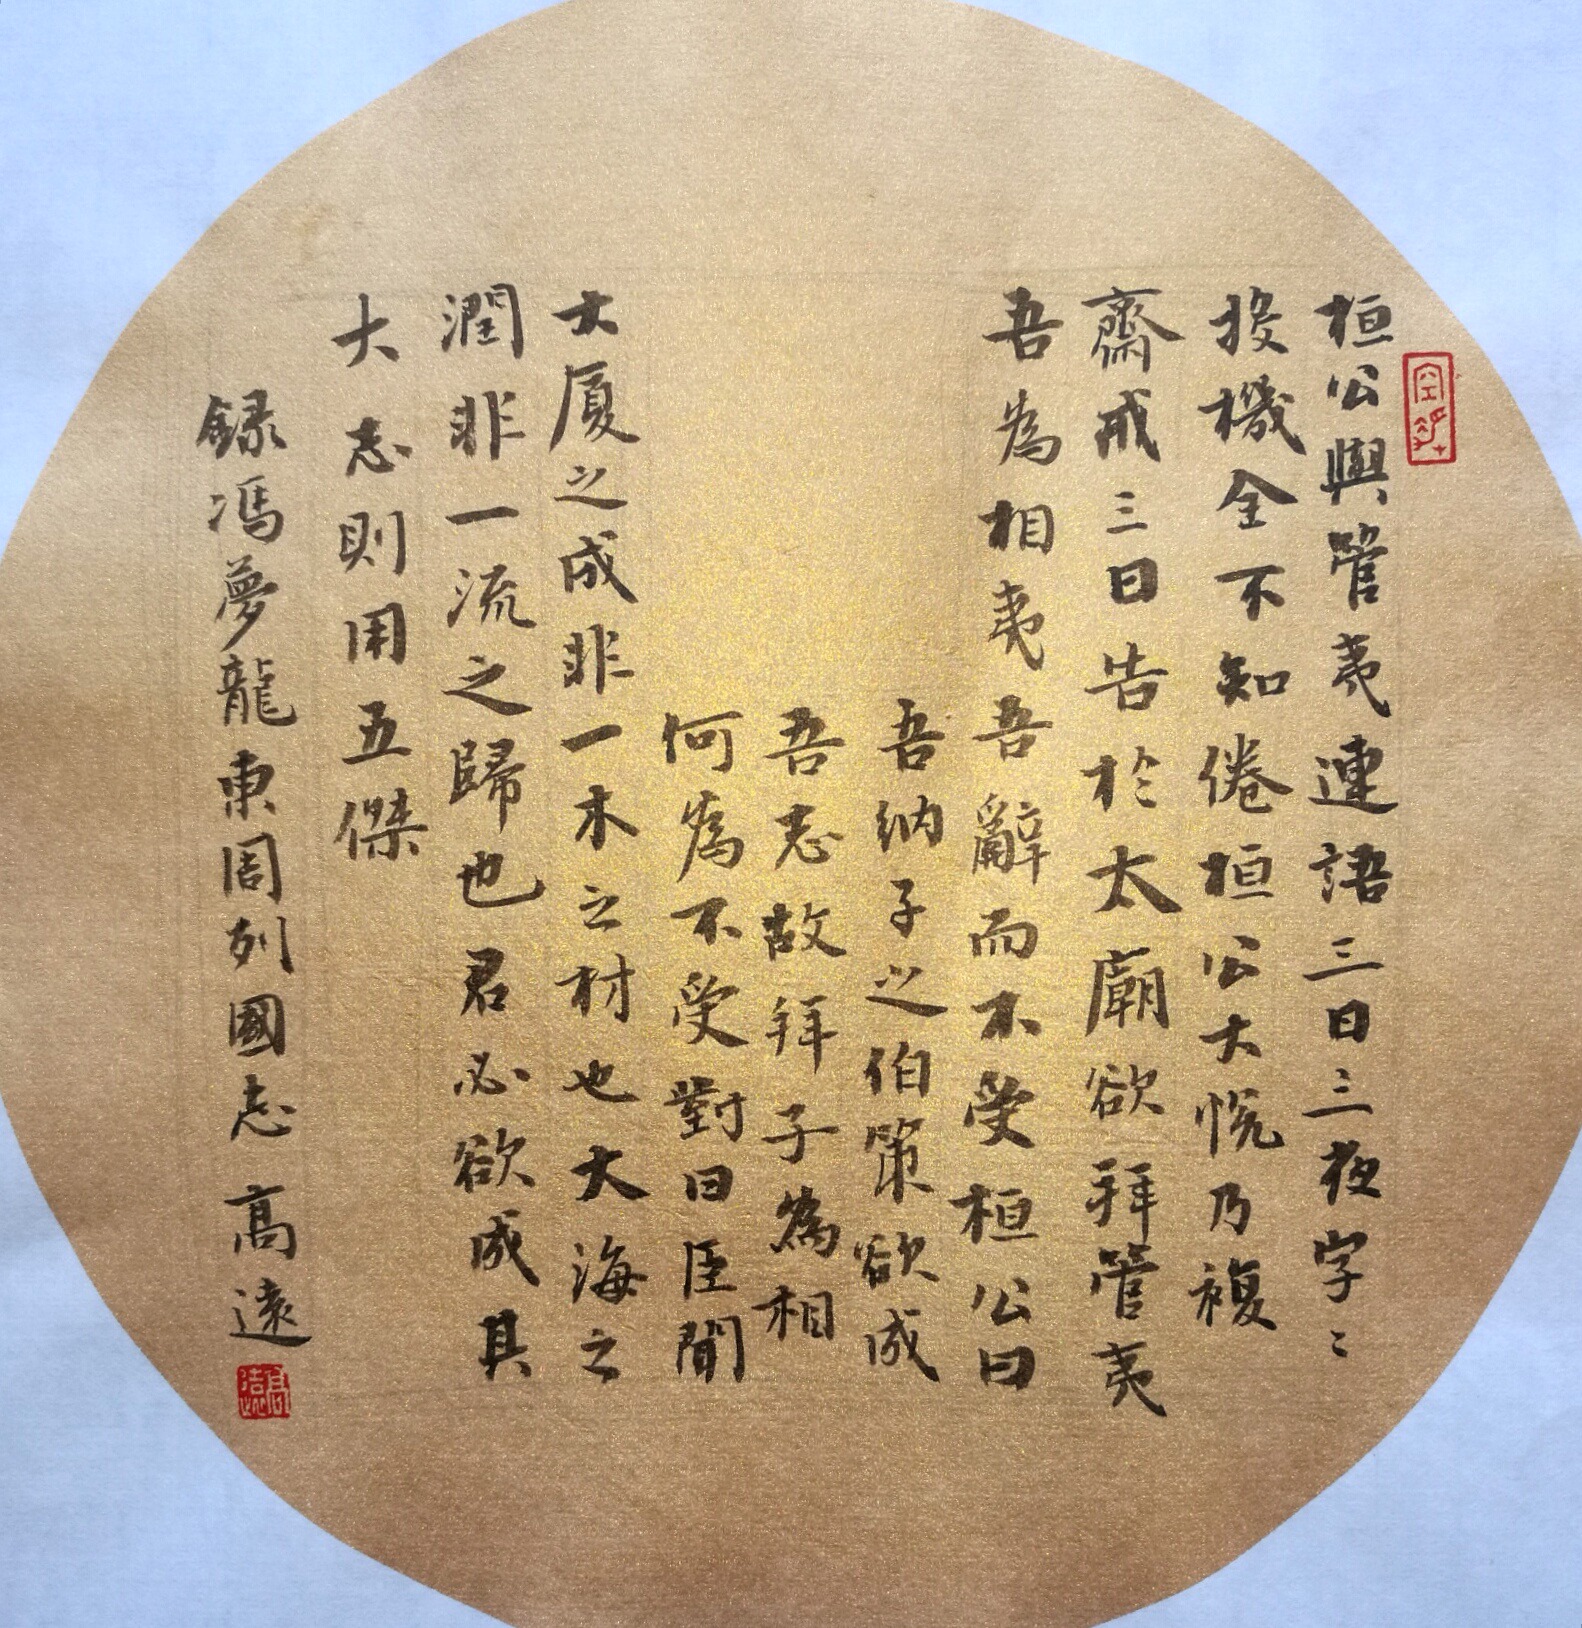 桓公與管夷連語三日三夜字〻
投機全不知倦桓公大悅乃複
齋戒三日告於太廟欲拜管夷
吾為相夷吾辭而不受桓公曰
吾納子之伯策欲成
吾志故拜子為相
何為不受對曰臣聞
大厦之成非一木之材也大海之
潤非一流之歸也君必欲成其
大志則用五傑
錄馮夢龍東周列國志 高遠
高遠